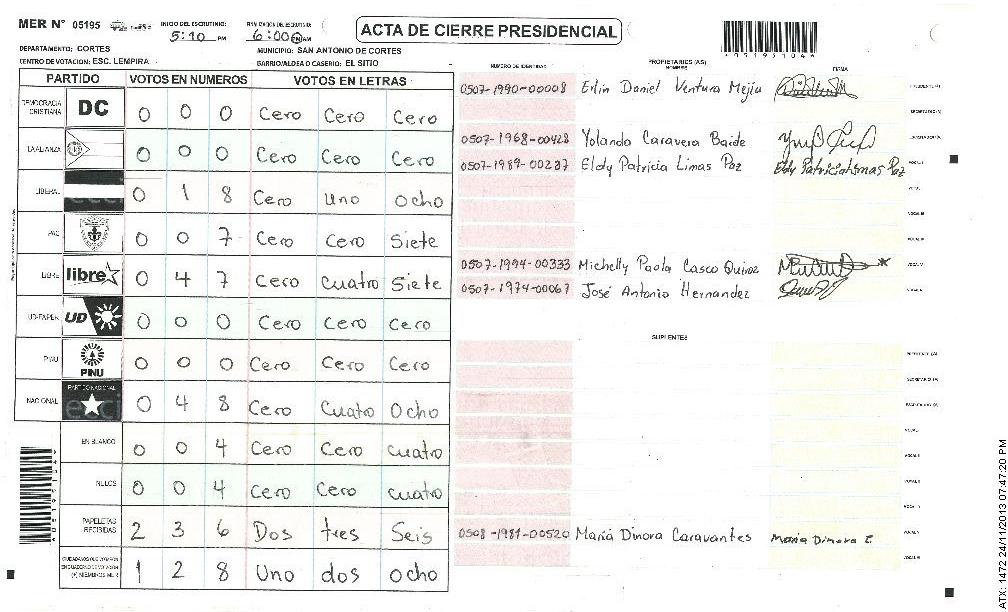 MER N° 05195
INICIO DEL ESCRUTINIO: 5:10 PM
FINALIZACION DEL ESCRUTINIO: 6:00 PM AM
ACTA DE CIERRE PRESIDENCIAL
DEPARTAMENTO: CORTES
MUNICIPIO: SAN ANTONIO DE CORTES
CENTRO DE VOTACION: ESC. LEMPIRA
BARRIO/ALDEA O CASERIO: EL SITIO
PARTIDO VOTOS EN NUMEROS VOTOS EN LETRAS
DEMOCRACIA CRISTIANA DC 0 0 0 Cero Cero Cero
LA ALIANZA 0 0 0 Cero Cero Cero
LIBERAL 0 1 8 Cero Uno Ocho
PAC 0 0 7 Cero Cero Siete
LIBRE libre 0 4 7 Cero Cuatro Siete
UD-FAPER UD 0 0 0 Cero Cero Cero
PINU PINU 0 0 0 Cero Cero Cero
NACIONAL PARTIDO NACIONAL 0 4 8 Cero Cuatro Ocho
EN BLANCO 0 0 4 Cero Cero Cuatro
NULOS 0 0 4 Cero Cero Cuatro
PAPELETAS RECIBIDAS 2 3 6 Dos tres Seis
1 2 8 Uno dos ocho
NUMERO DE IDENTIDAD PROPIETARIOS (AS) NOMBRES FIRMA
0507-1990-00008 Erlin Daniel Ventura Mejia PRESIDENTE (A)
SECRETARIO (A)
0507-1968-00428 Yolanda Caravera Baide ESCRUTADOR (A)
0507-1989-00287 Eldy Patricia Limas Paz Eldy Patricia Limas Paz VOCAL I
0507-1994-00333 Michelly Paola Casco Quiroz
0507-1974-00067 José Antonio Hernandez
SUPLENTES
PRESIDENTE (A)
SECRETARIO (A)
ESCRUTADOR (A)
0508-1981-00520 Maria Dinora Caravantes Maria Dinora C.
ATX: 1472 24/11/2013 07:47:20 PM